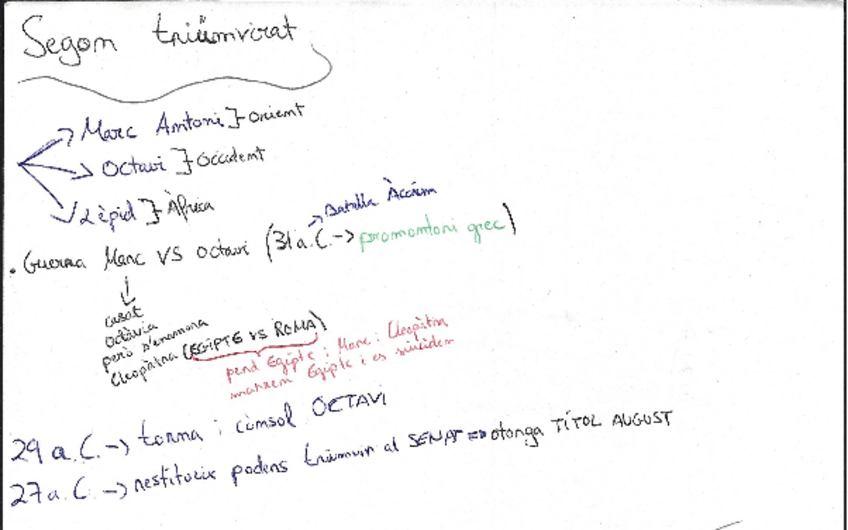 Segon triümvirat
Marc Antoni } Orient
Octavi } Occident
Lèpid } Àfrica
Batalla Àccium
• Guerra Marc VS Octavi (31 a.C. -> promontori grec)
casat
Octàvia
però s'enamora
Cleopatra (EGIPTE VS ROMA)
perd Egipte i Marc i Cleopatra
marxen Egipte i es suïciden
29 a.C. -> torna i cònsol OCTAVI
27 a.C. -> restitueix poders triumvir al SENAT => otorga TÍTOL AUGUST